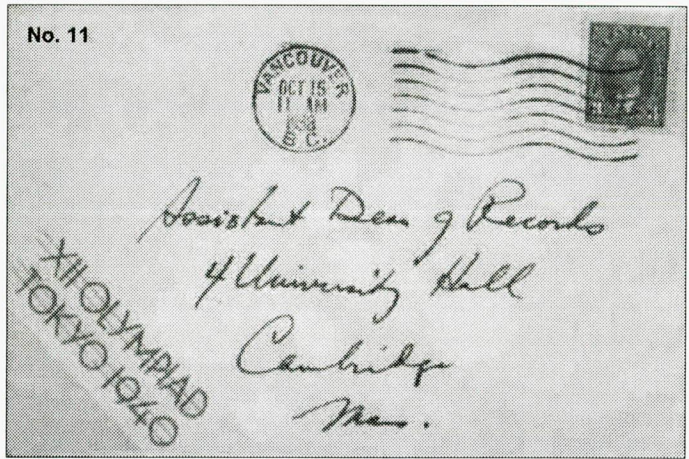 No. 11
VANCOUVER
OCT 15
11 AM
1938
B.C.
Assistant Dean of Records
4 University Hall
Cambridge
Mass.
XII OLYMPIAD
TOKYO 1940